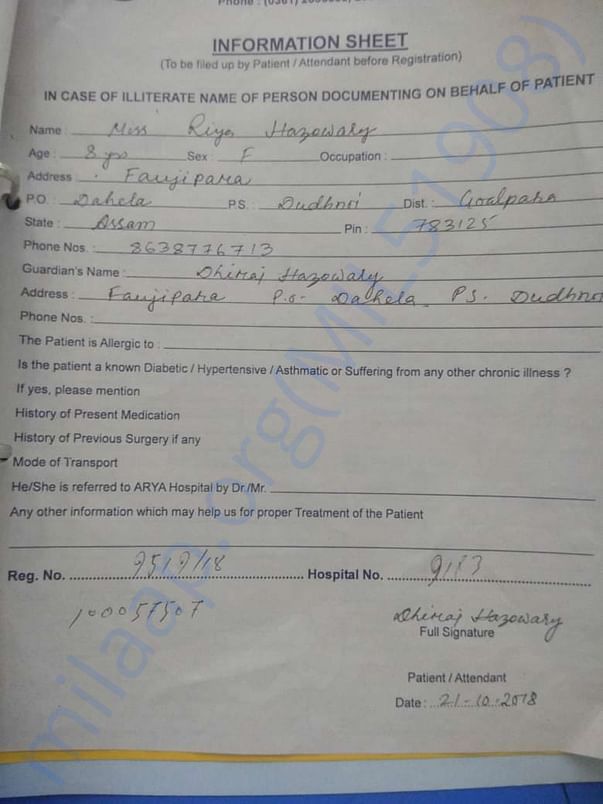 Phone : (0361)
INFORMATION SHEET
(To be filed up by Patient / Attendant before Registration)
IN CASE OF ILLITERATE NAME OF PERSON DOCUMENTING ON BEHALF OF PATIENT
Name : Miss Riya Hazowary
Age : 8 yrs Sex : F Occupation :
Address : Faujipara
P.O. : Dahela P.S. : Dudhnoi Dist. : Goalpara
State : Assam Pin : 783125
Phone Nos. : 8638776713
Guardian's Name : Dhiraj Hazowary
Address : Faujipara P.o- Dahela P.S. Dudhnoi
Phone Nos. :
The Patient is Allergic to :
Is the patient a known Diabetic / Hypertensive / Asthmatic or Suffering from any other chronic illness ?
If yes, please mention
History of Present Medication
History of Previous Surgery if any
Mode of Transport
He/She is referred to ARYA Hospital by Dr./Mr.
Any other information which may help us for proper Treatment of the Patient
Reg. No. Hospital No.
100057507
Dhiraj Hazowary
Full Signature
Patient / Attendant
Date : 21-10-2018
milaap.org(MIL51908)